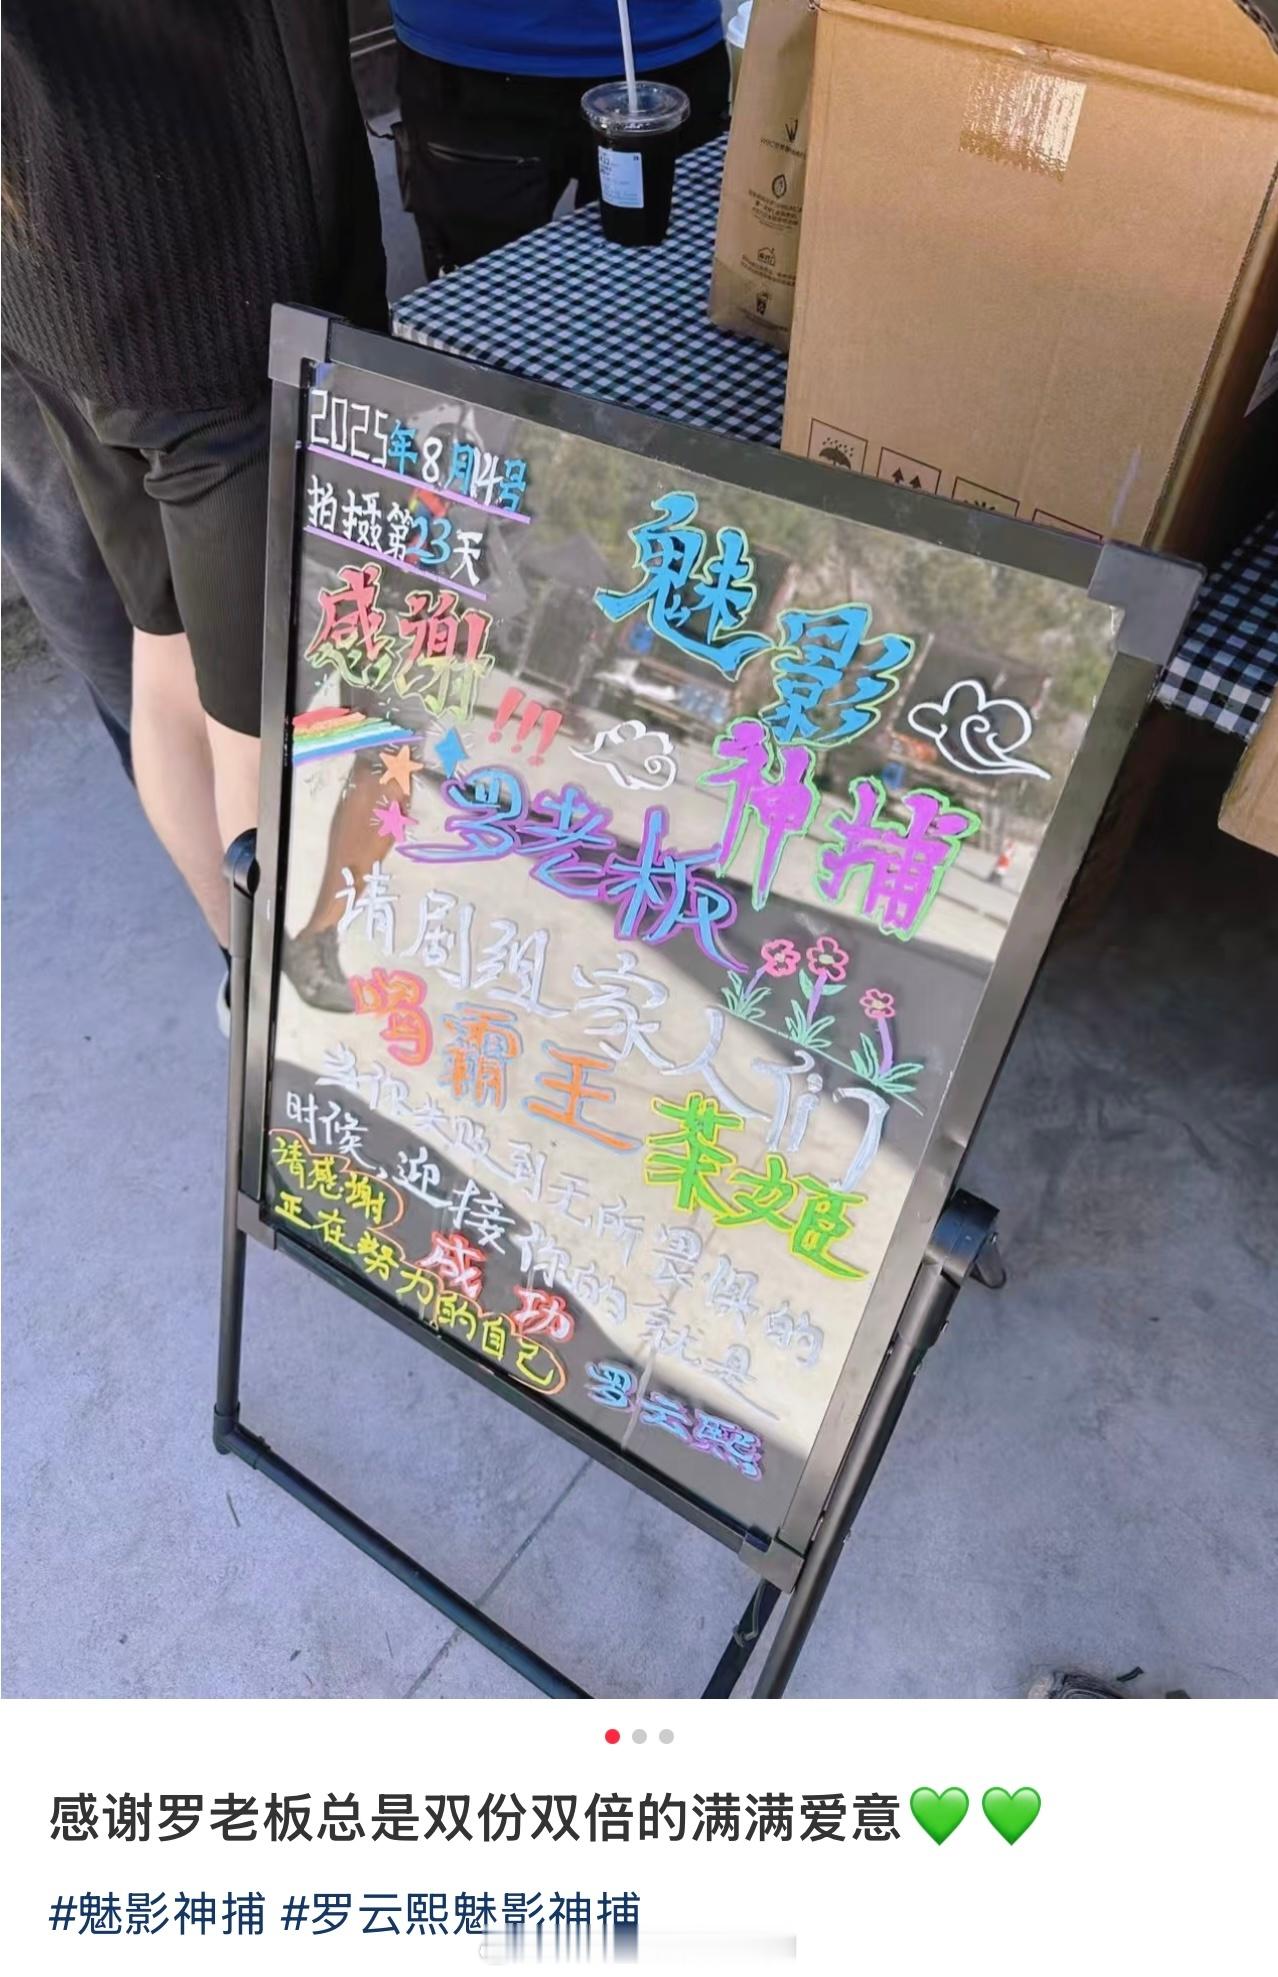 2025年8月14号
拍摄第23天
魅影
神捕
感谢
!!!
罗老板
请剧组家人们
喝霸王茶姬
当你失败到无所畏惧的
时候,迎接你的就是
成功
请感谢
正在努力的自己
罗云熙
感谢罗老板总是双份双倍的满满爱意💚💚
#魅影神捕 #罗云熙魅影神捕